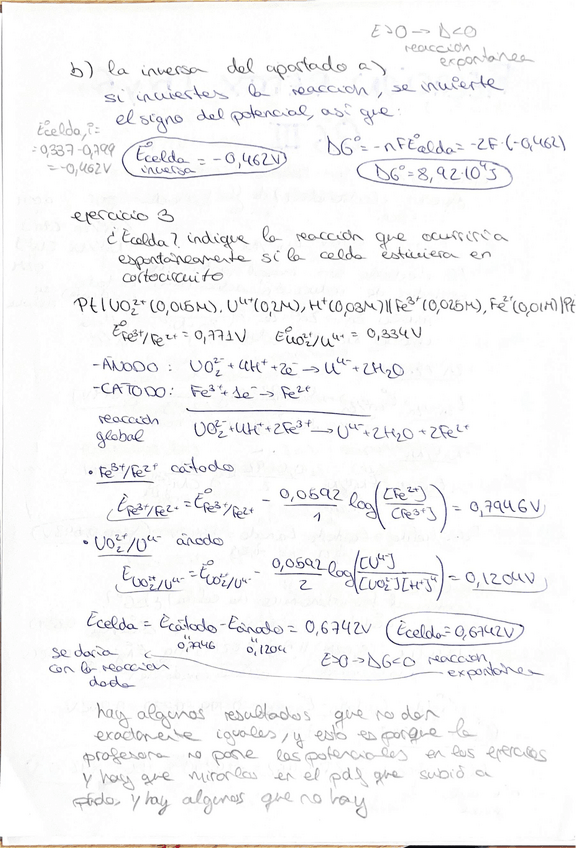 E>0 → Δ<0
reacción
expontánea
b) la inversa del apartado a)
si inviertes la reacción, se invierte
el signo del potencial, así que:
E°celda,i =
= 0,337-0,799
= -0,462V
E°celda inversa = -0,462V
ΔG° = -nFE°celda = -2F·(-0,462)
ΔG° = 8,92·10⁴J
ejercicio 3
¿Ecelda?, indique la reacción que ocurriría
espontáneamente si la celda estuviera en
cortocircuito
Pt|UO₂²⁺(0,015M), U⁴⁺(0,2M), H⁺(0,03M)||Fe³⁺(0,025M), Fe²⁺(0,01M)|Pt
E°Fe³⁺/Fe²⁺ = 0,771V E°UO₂²⁺/U⁴⁺ = 0,334V
-ÁNODO: UO₂²⁻+4H⁺+2e⁻→U⁴⁻+2H₂O
-CÁTODO: Fe³⁺+1e⁻→Fe²⁺
reacción
global
UO₂²⁻+4H⁺+2Fe³⁺→U⁴⁻+2H₂O+2Fe²⁺
• Fe³⁺/Fe²⁺ cátodo
EFe³⁺/Fe²⁺ = E°Fe³⁺/Fe²⁺ - 0,0592/1 log([Fe²⁺]/[Fe³⁺]) = 0,7946V
• UO₂²⁺/U⁴⁻ ánodo
EUO₂²⁺/U⁴⁻ = E°UO₂²⁻/U⁴⁻ - 0,0592/2 log([U⁴⁻]/[UO₂²⁻][H⁺]⁴) = 0,1204V
Ecelda = Ecátodo - Eánodo = 0,6742V Ecelda = 0,6742V
0,7946 0,1204
se daría
con la reacción
dada
E>0 → ΔG<0 reacción
expontánea
hay algunos resultados que no den
exactamente iguales, y esto es porque la
profesora no pone los potenciales en los ejercicios
y hay que mirarlos en el pdf que subió a
y hay algunos que no hay